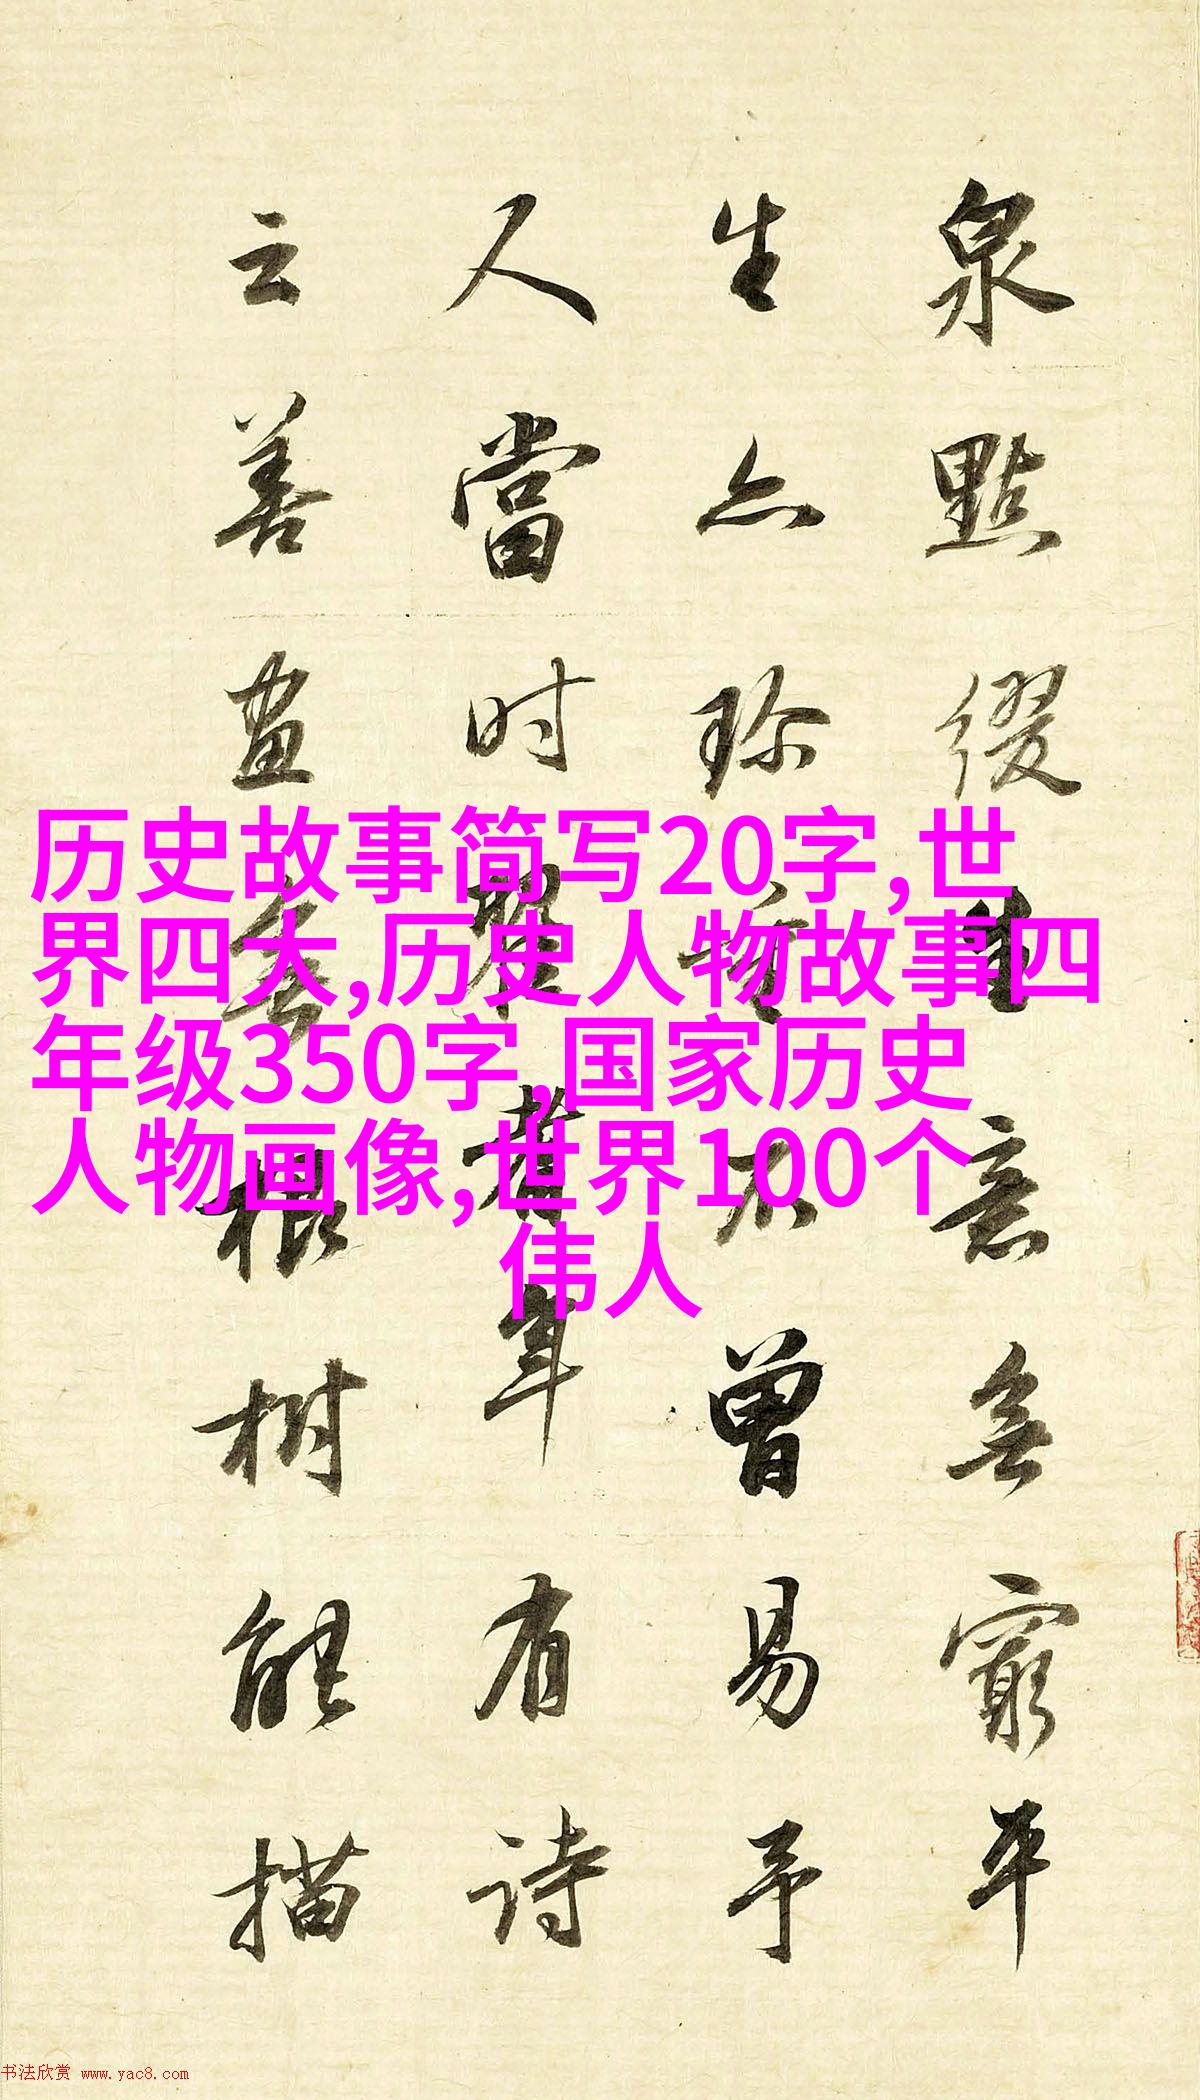 历史故事简写20字,世
界四大,历史人物故事四
年级350字,国家历史
人物画像,世界100个
伟人
泉點綴意無窮平
生亦珍重不曾易予
人當时耆年有诗
云善畫無根树能描
书法欣赏 www.yac8.com